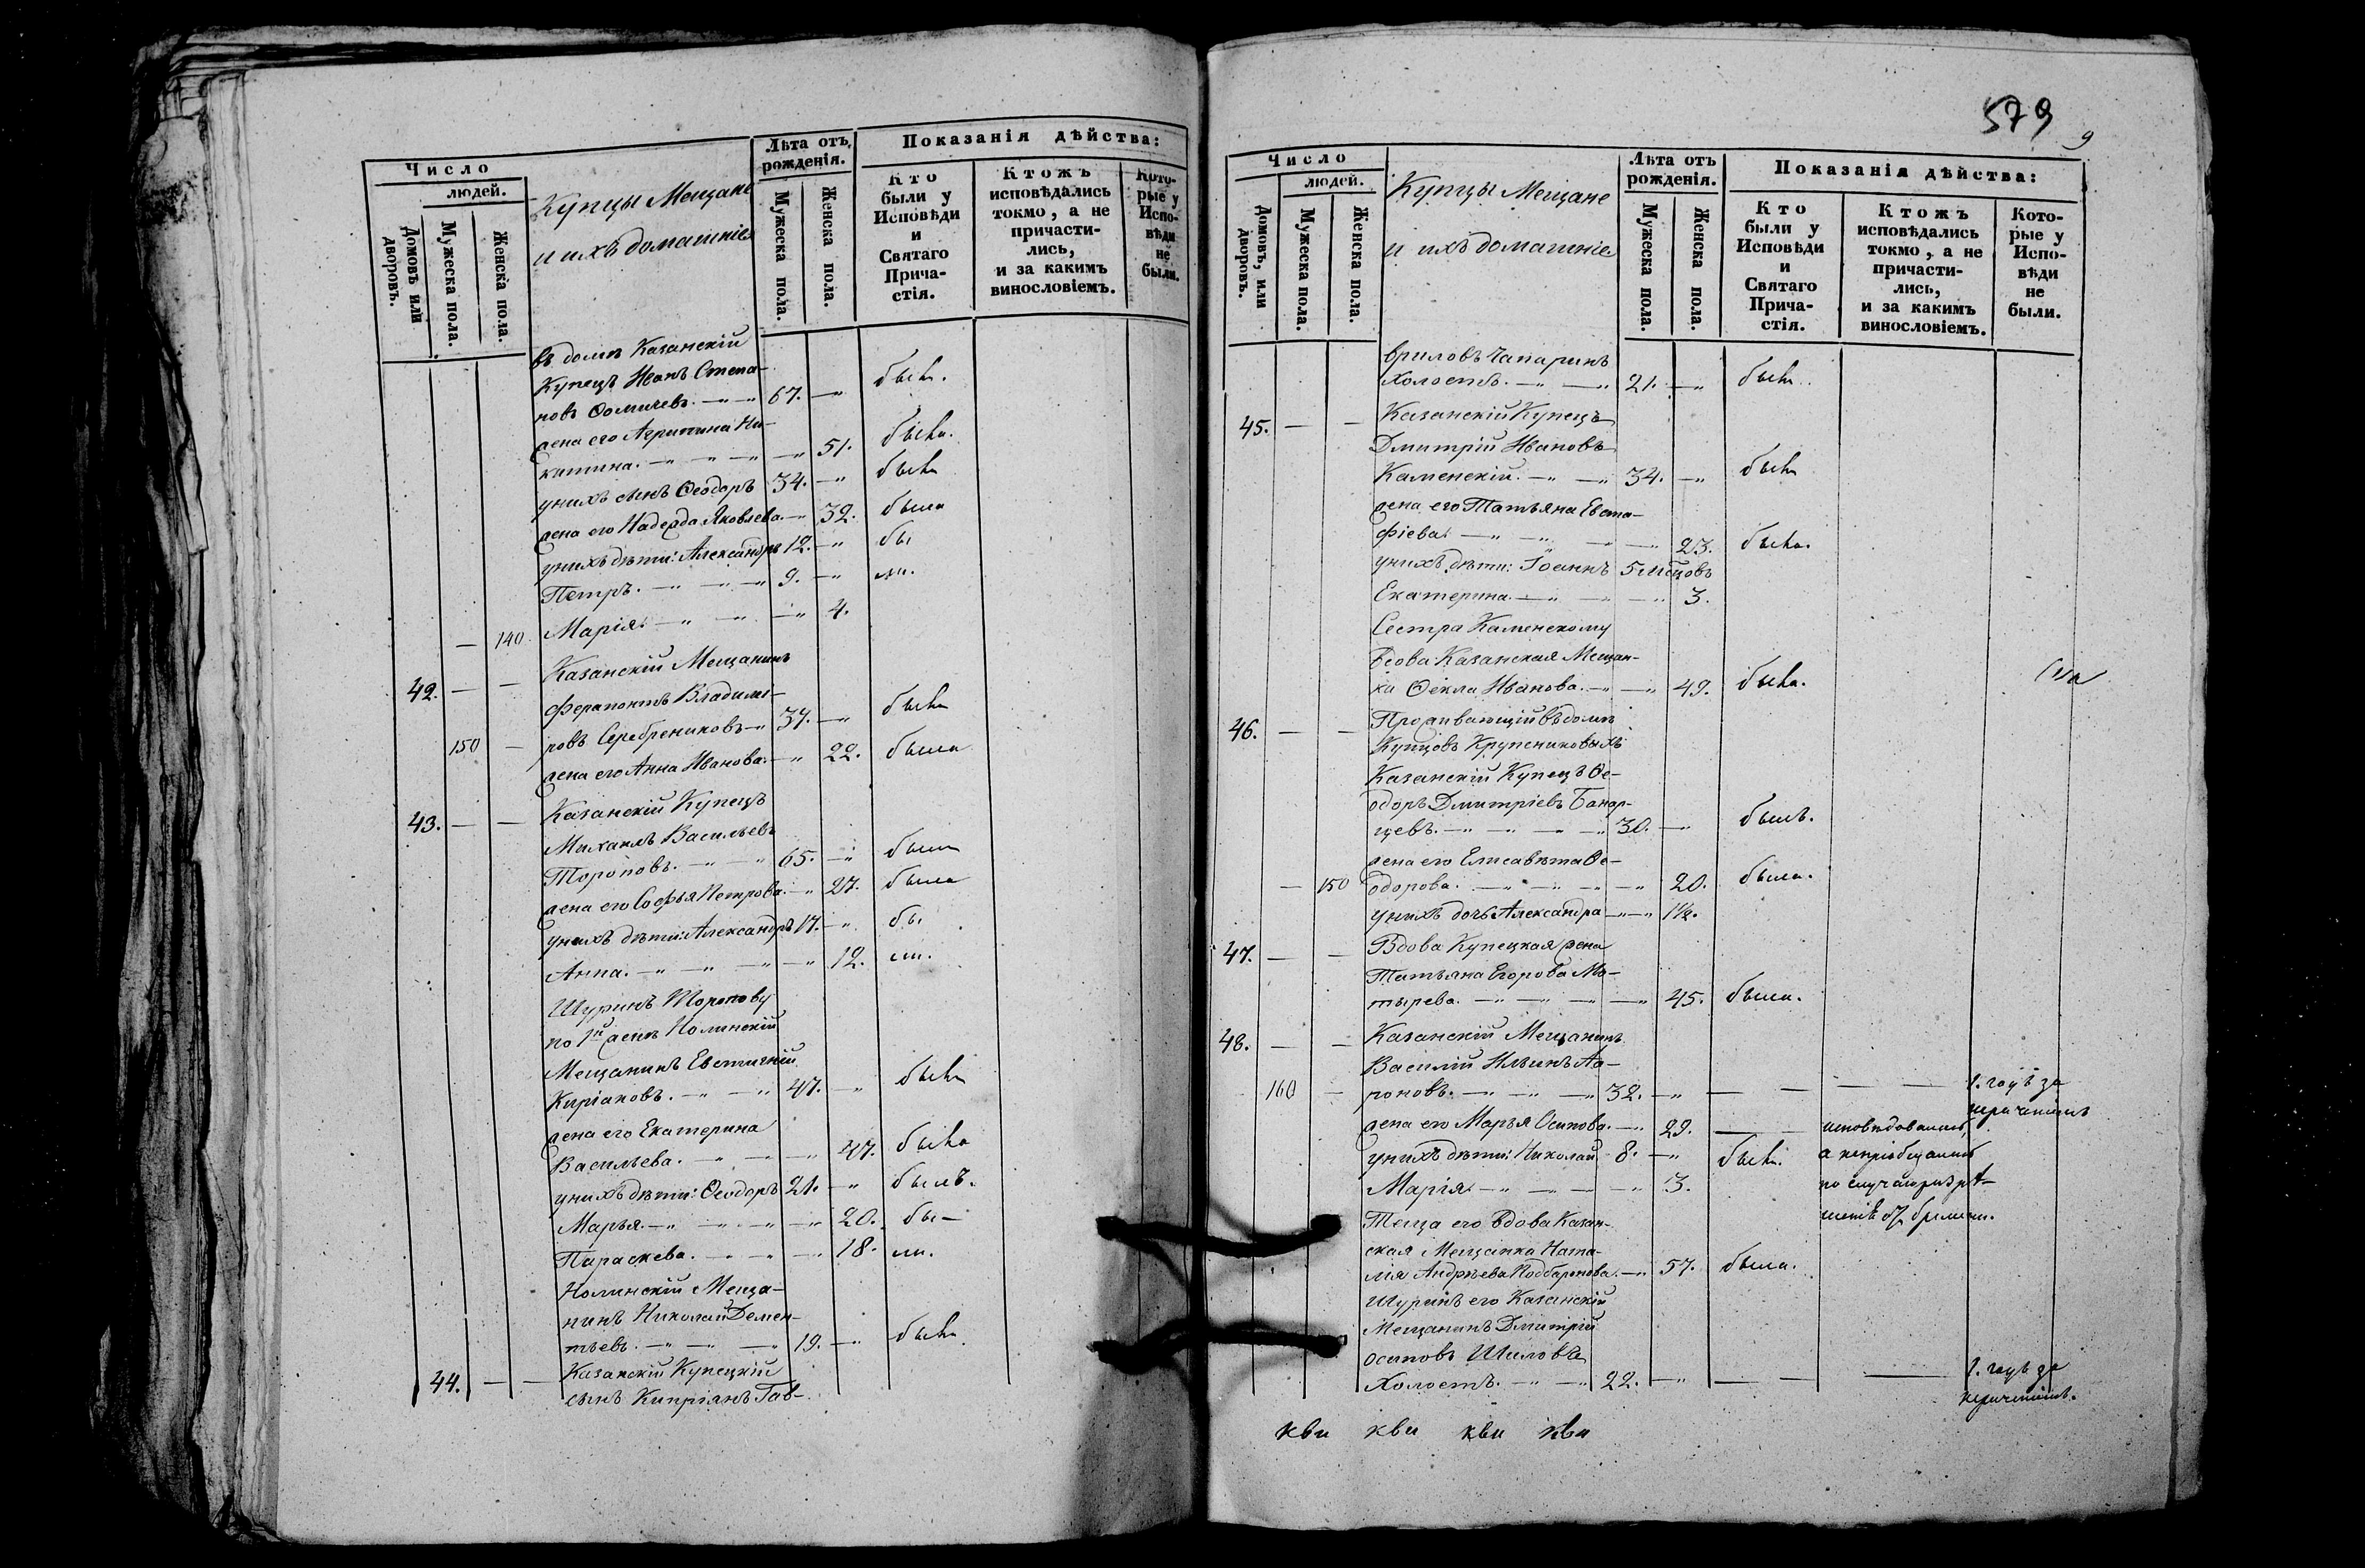 Число
людей.
Домовъ или дворовъ.
Мужеска пола.
Женска пола.
Купцы Мещане
и ихъ домашніе
Лѣта отъ рожденія.
Мужеска пола.
Женска пола.
Показанія дѣйства:
Кто были у Исповѣди и Святаго Причастія.
Ктожъ исповѣдались токмо, а не причастились, и за какимъ винословіемъ.
Которые у Исповѣди не были.
въ домѣ Казанскій
Купецъ Иванъ Степа-
новъ Ѳомичевъ. 67. былъ.
жена его Агрипина Ни-
китина. 51. была.
у нихъ сынъ Ѳеодоръ 34. былъ
жена его Надежда Яковлева. 32. была
у нихъ дѣти: Александръ 12. бы
Петръ. 9. ли.
140 Марія. 4.
42. Казанскій Мещанинъ
Ферапонтъ Владимі-
150 ровъ Серебрениковъ 37. былъ
жена его Анна Иванова. 22. была
43. Казанскій Купецъ
Михаилъ Васильевъ
Тороповъ. 65. былъ
жена его Софья Петрова. 27. была
у нихъ дѣти: Александръ 17. бы
Анна. 12. ли.
Шуринъ Торопову
по 1й женѣ Нолинскій
Мещанинъ Евстигній
Киріаковъ. 47. былъ
жена его Екатерина
Васильева. 47. была
у нихъ дѣти: Ѳеодоръ 21. былъ.
Марья. 20. бы-
Параскева. 18. ли.
Нолинскій Меща-
нинъ Николай Демен-
тьевъ. 19. былъ
44. Казанскій Купецкій
сынъ Кипріянъ Гав-
579
9
Число
людей.
Домовъ, или дворовъ.
Мужеска пола.
Женска пола.
Купцы Мещане
и ихъ домашніе
Лѣта отъ рожденія.
Мужеска пола.
Женска пола.
Показанія дѣйства:
Кто были у Исповѣди и Святаго Причастія.
Ктожъ исповѣдались токмо, а не причастились, и за какимъ винословіемъ.
Которые у Исповѣди не были.
вриловъ Чапаринъ
Холостъ. 21. былъ.
45. Казанскій Купецъ
Дмитрій Ивановъ
Каменскій. 34. былъ
жена его Татьяна Евста-
фіева. 23. была.
у нихъ дѣти: Іоаннъ 5 мѣсцовъ
Екатерина. 3.
Сестра Каменскому
вдова Казанская Мещан-
ка Ѳекла Иванова. 49. была.
46. Проживающій въ домѣ
Купцовъ Крупениковыхъ
Казанскій Купецъ Ѳе-
одоръ Дмитріевъ
цевъ. 30. былъ.
жена его Елисавета Ѳе-
150 одорова. 20. была.
у нихъ дочь Александра 1½.
47. Вдова Купецкая жена
Татьяна Егорова Ма-
тырева. 45. была.
48. Казанскій Мещанинъ
Василій Ильинъ
160 роновъ. 32. 1. годъ за
нерачениемъ
жена его Марья Осипова. 29. исповѣдовалась,
у нихъ дѣти: Николай 8. былъ. а непріобщалась
Марія. 3. по случаю разрѣ-
шенія отъ бремени.
Теща его вдова Казан-
ская Мещанка Ната-
лія Андреева 57. была.
Шуринъ его Казанскій
Мещанинъ Дмитрій
Осиповъ Шиловъ
Холостъ. 22. 1. годъ за
нерачениемъ.